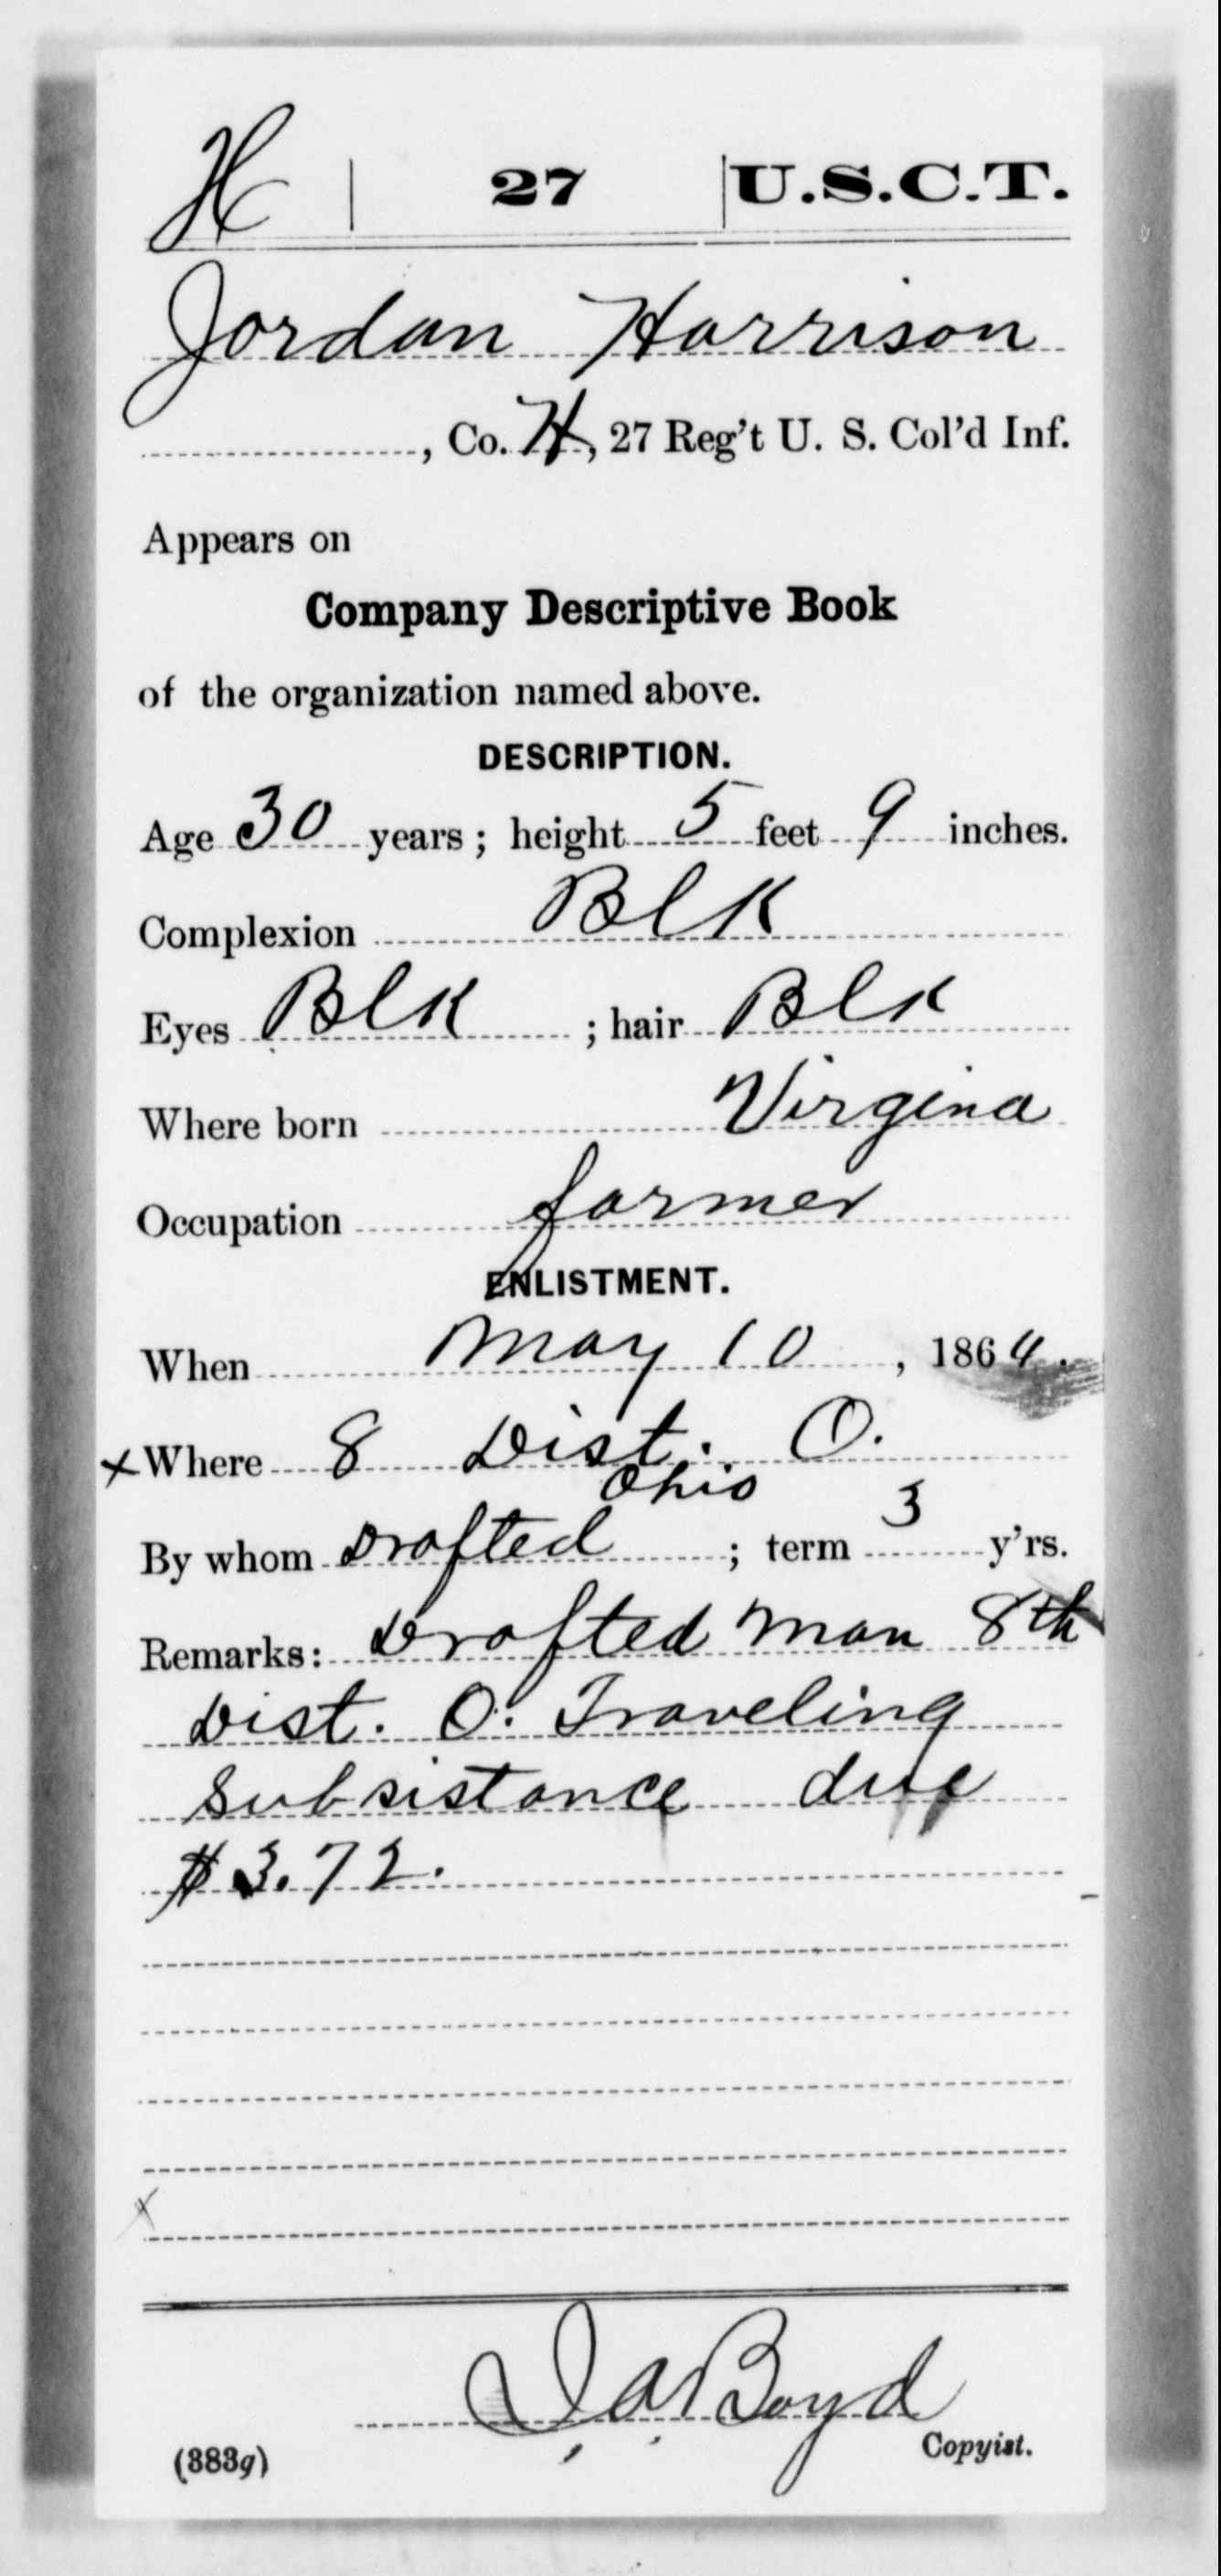 H | 27 | U.S.C.T.
Jordan Harrison
, Co. H, 27 Reg't U. S. Col'd Inf.
Appears on
Company Descriptive Book
of the organization named above.
DESCRIPTION.
Age 30 years; height 5 feet 9 inches.
Complexion Blk
Eyes Blk ; hair Blk
Where born Virgina
Occupation farmer
ENLISTMENT.
When May 10, 1864.
x Where 8 Dist. O.
Ohio
By whom Drafted ; term 3 y'rs.
Remarks: Drafted Man 8th
Dist. O. Traveling
Subsistance due
$3.72.
x
Boyd
(383g) Copyist.